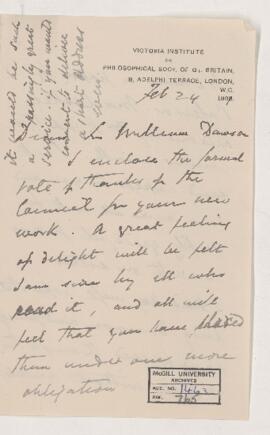 VICTORIA INSTITUTE
OR
PHILOSOPHICAL SOCY. OF GT. BRITAIN,
8, ADELPHI TERRACE, LONDON,
W.C.
Feb 24
Dear Sir William Dawson
I enclose the formal
vote of thanks of the
Council for your new
work. A great feeling
of delight will be felt
I am sure by all who
read it, and all will
feel that you have placed
them under one more
obligation
it would be such
a great
service if you would
consent to deliver
a short address
McGILL UNIVERSITY
ARCHIVES
ACC. NO. 1462
REF. 765